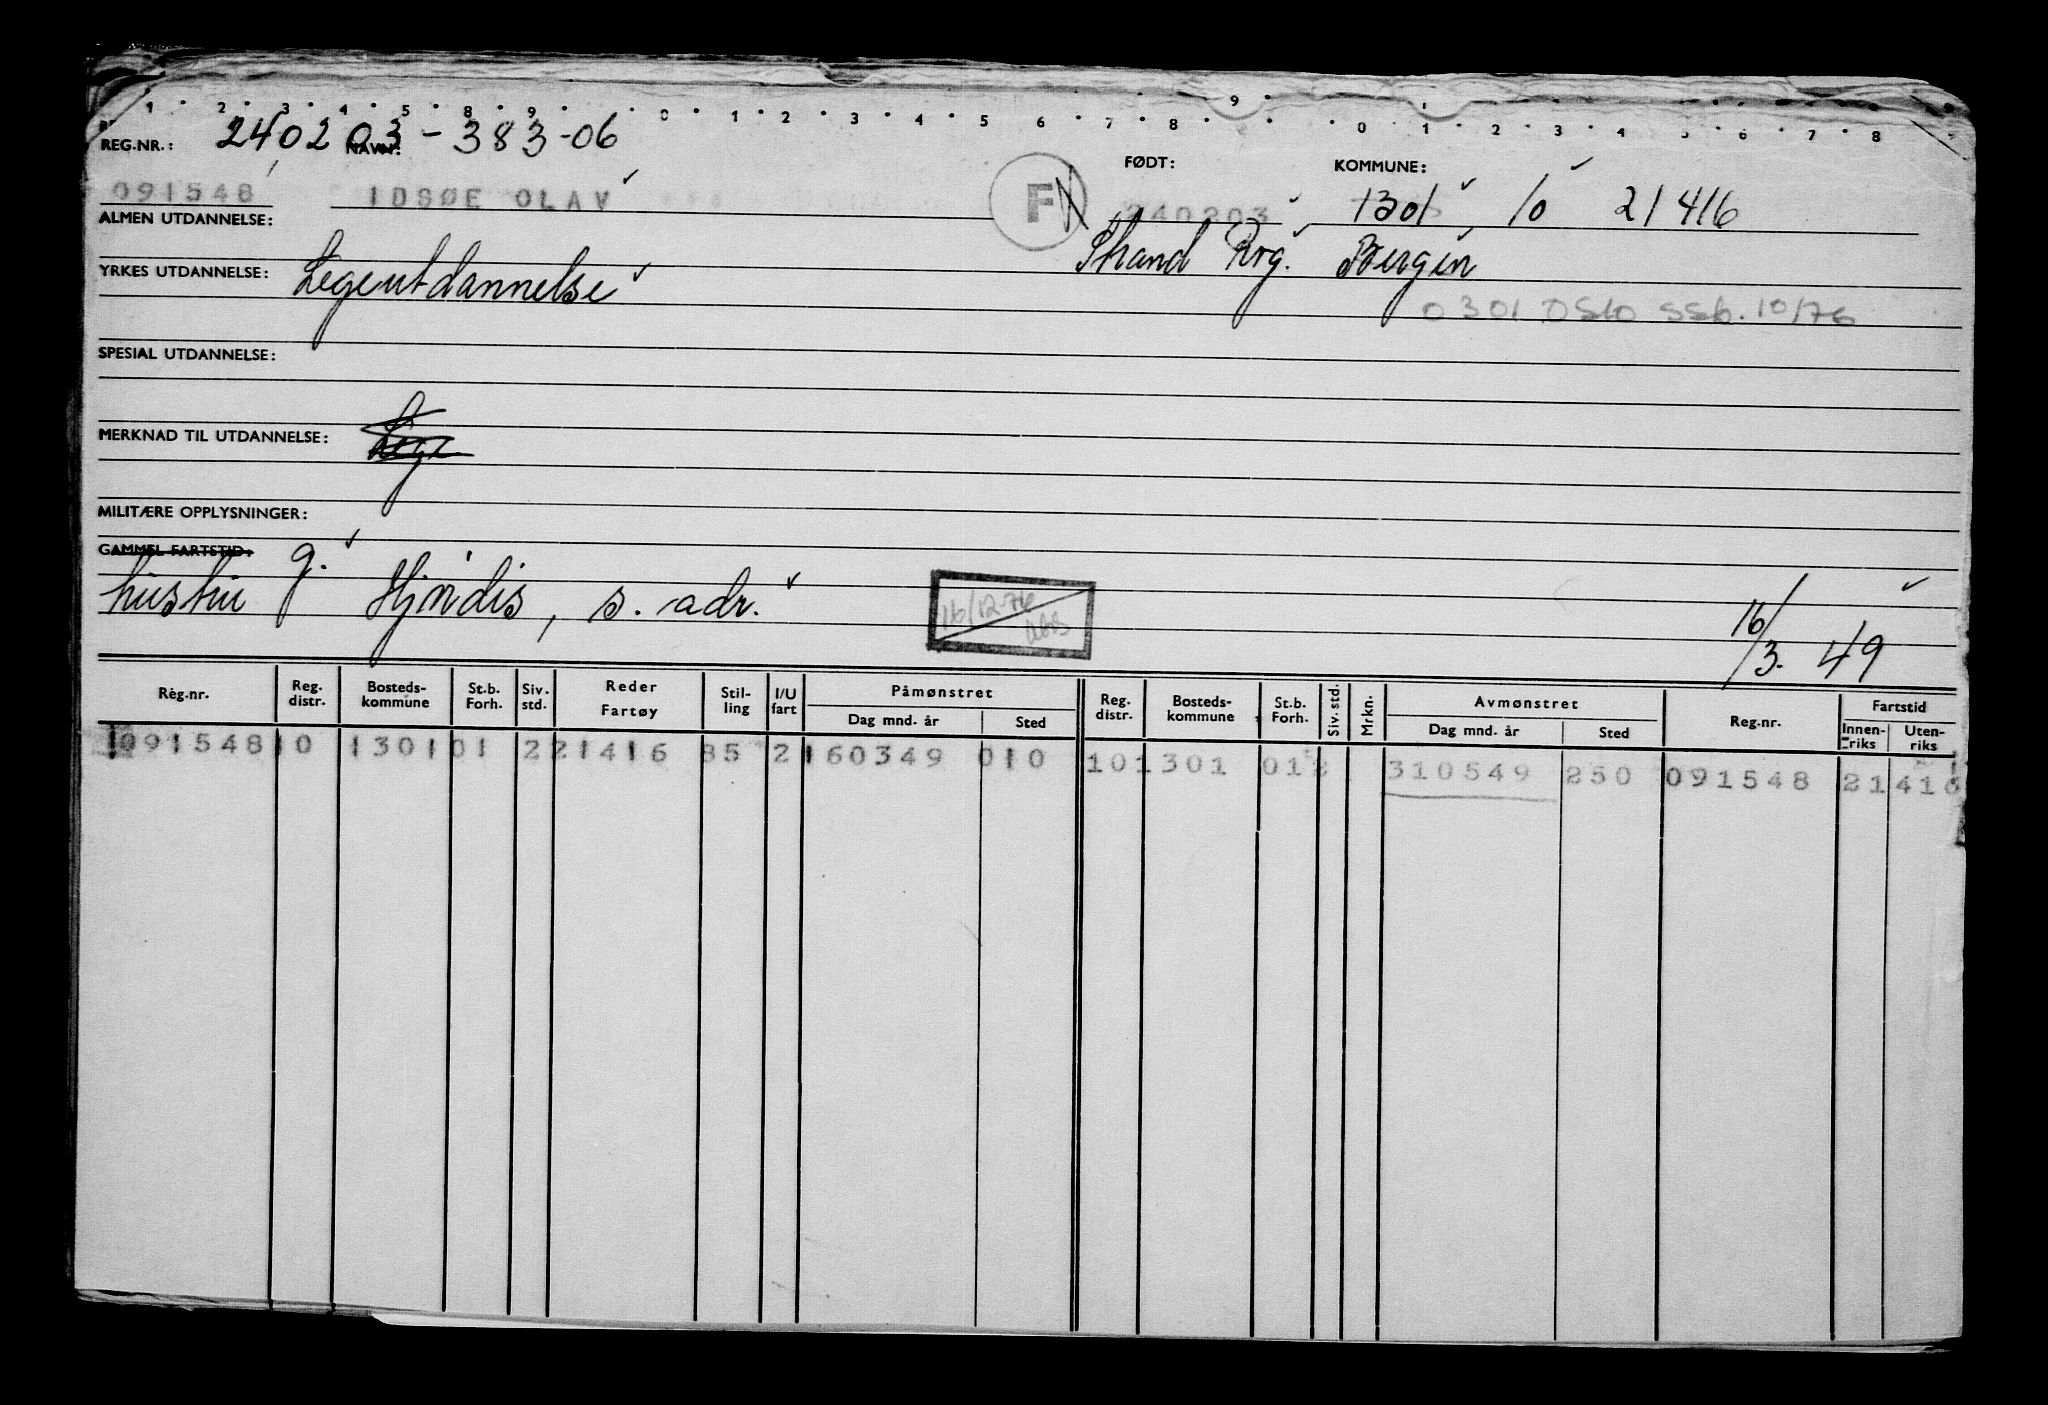 1 2 3 4 5 8 9 0 1 2 3 4 5 6 7 8 9 0 1 2 3 4 5 6 7 8
REG.NR.: 240203-383-06 NAVN: FØDT: KOMMUNE:
091548 IDSØE OLAV F 240203 1301 10 21416
ALMEN UTDANNELSE: Strand Rog. Bergen
YRKES UTDANNELSE: Legeutdannelse
0301 OSLO SSb. 10/76
SPESIAL UTDANNELSE:
MERKNAD TIL UTDANNELSE: Lege
MILITÆRE OPPLYSNINGER:
GAMMEL FARTSTID: g.
hustru Hjördis, s. adr. 16/12-76 16/3. 49
Reg.nr. Reg. distr. Bosteds-kommune St.b. Forh. Siv. std. Reder Fartøy Stil-ling I/U fart Påmønstret Dag mnd. år Sted Reg. distr. Bosteds-kommune St.b. Forh. Siv. std. Mrkn. Avmønstret Dag mnd. år Sted Reg.nr. Fartstid Innen-riks Uten-riks
091548 10 1301 01 2 21416 85 2 160349 010 10 1301 01 2 310549 250 091548 21 416